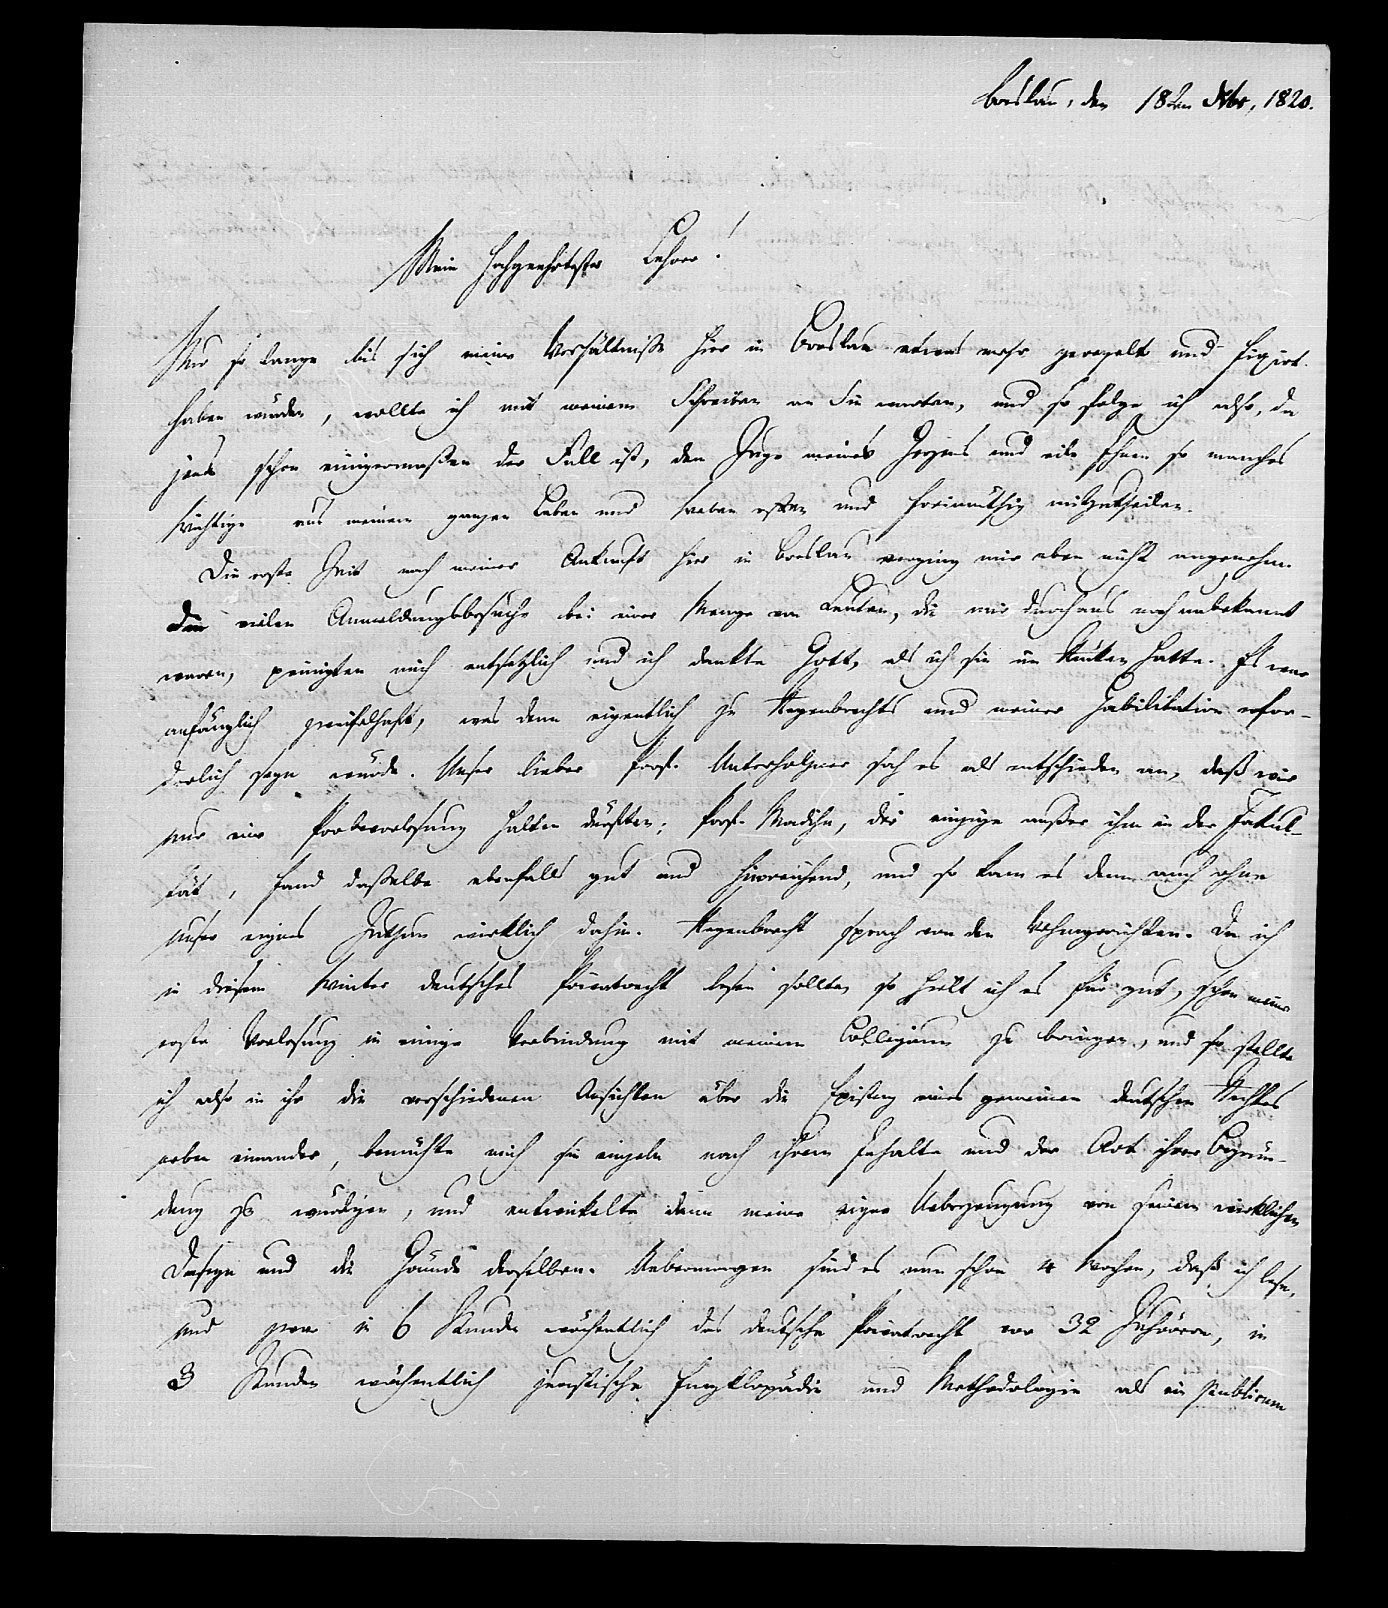 Breslau, den 18ten Xbr, 1820.
Mein hochgeehrtester Lehrer!
Nur so lange bis sich meine Verhältniße hier in Breslau etwas mehr geregelt und fixirt
haben würden, wollte ich mit meinem Schreiben an Sie warten, und so folge ich also, da
jenes schon einigermaßen der Fall ist, dem Zuge meines Herzens und eile Ihnen so manches
Wichtige aus meinem ganzen Leben und Weben offen und freimüthig mitzutheilen.
Die erste Zeit nach meiner Ankunft hier in Breslau verging mir eben nicht angenehm.
Die vielen Anmeldungsbesuche bei einer Menge von Leuten, die mir durchaus noch unbekannt
waren, peinigten mich entsetzlich und ich dankte Gott, als ich sie im Rücken hatte. Es war
anfänglich zweifelhaft, was denn eigentlich zu Regenbrechts und meiner Habilitation erfor-
derlich seyn würde. Unser lieber Prof. Unterholzner sah es als entschieden an, daß wir
nur eine Probevorlesung halten dürften; Prof. Madihn, der einzige außer ihm in der Fakul-
tät, fand daßelbe ebenfalls gut und hinreichend, und so kam es denn auch ohne
unser eignes Zuthun wirklich dahin. Regenbrecht sprach von den Vehmgerichten. Da ich
in diesem Winter deutsches Privatrecht lesen sollte, so hielt ich es für gut, schon meine
erste Vorlesung in einige Verbindung mit meinem Collegium zu bringen, und so stellte
ich also in ihr die verschiedenen Ansichten über die Existenz eines gemeinen deutschen Rechtes
neben einander, bemühte mich sie einzeln nach ihrem Inhalte und der Art ihrer Begrün-
dung zu würdigen, und entwickelte dann meine eigne Ueberzeugung von seinem wirklichen
Daseyn und die Gründe derselben. Uebermorgen sind es nun schon 4 Wochen, daß ich lese,
und zwar in 6 Stunden wöchentlich das deutsche Privatrecht vor 32 Zuhörern, in
3 Stunden wöchentlich juristische Encyklopädie und Methodologie als ein Publicum